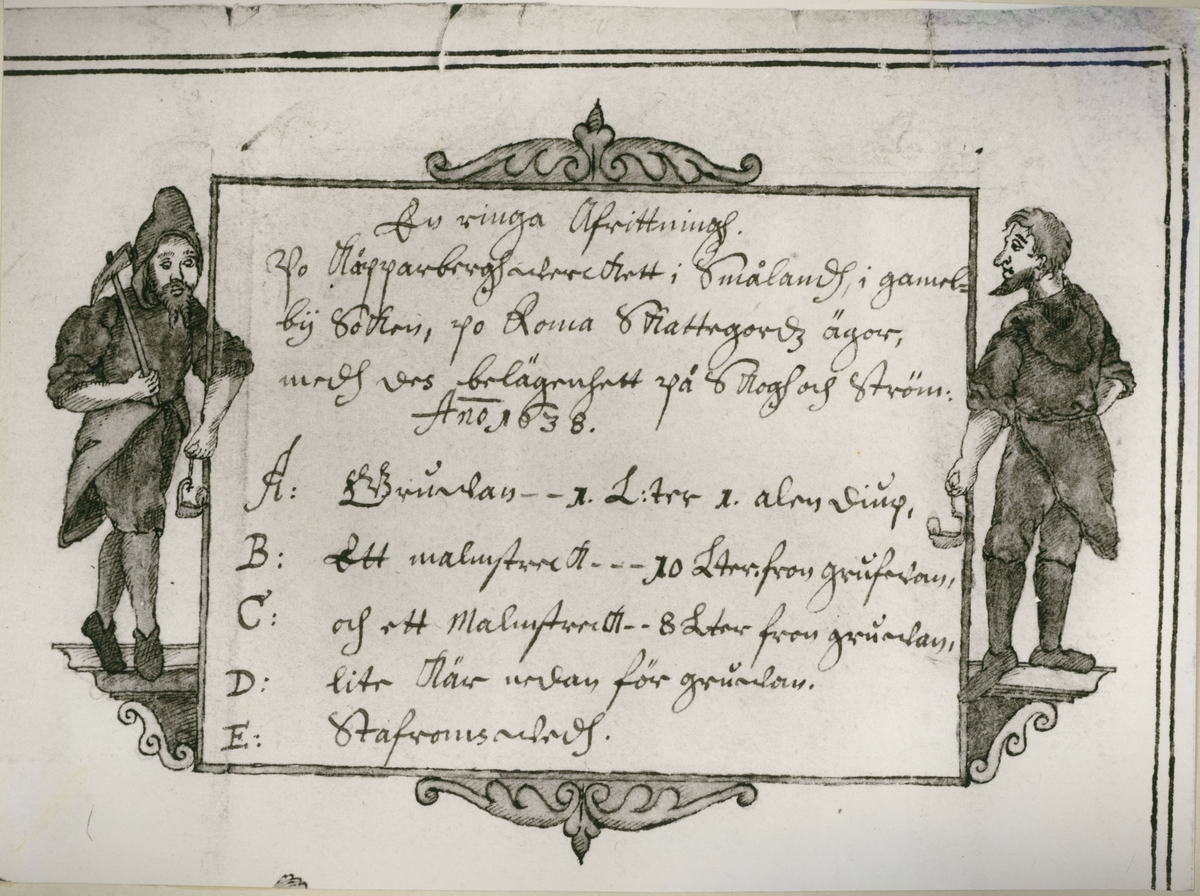 En ringa Afrittningh.
Po Kåpparbergh werckett i Smålandh, i gamel=
bÿ Söken, po Roma Skattegordz ägor,
medh des belägenhett på Skogh och Ström:
Ano 1638.
A: Gruwan -- 1. L:ter 1. alen diup,
B: Ett malmstreck --- 10 Lter: fron grufwan,
C: och ett Malmstreck -- 8 Lter fron gruwan,
D: lite Kär nedan för gruwan.
E: Stafroms wedh.